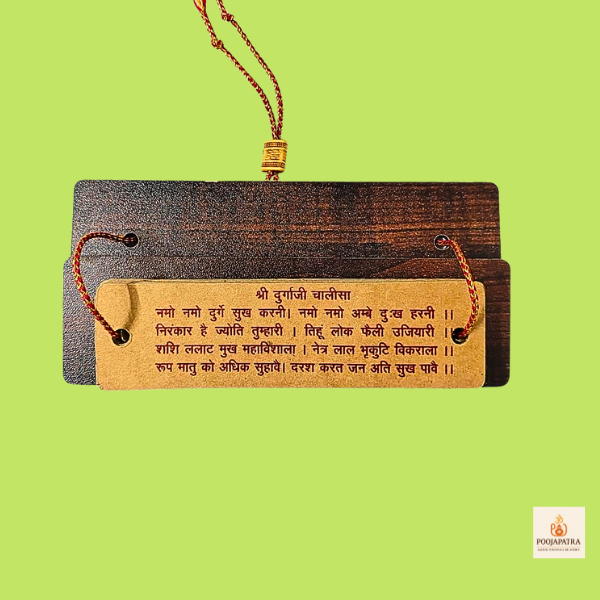 श्री दुर्गाजी चालीसा
नमो नमो दुर्गे सुख करनी। नमो नमो अम्बे दुःख हरनी ।।
निरंकार है ज्योति तुम्हारी । तिहूं लोक फैली उजियारी ।।
शशि ललाट मुख महाविशाला । नेत्र लाल भृकुटि विकराला ।।
रूप मातु को अधिक सुहावै। दरश करत जन अति सुख पावै ।।
POOJAPATRA